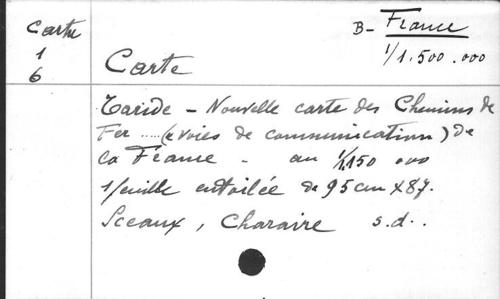 Carte
1
6
B- France
1/1.500.000
Carte
Taride - Nouvelle carte des Chemins de
Fer ..... (& voies de communication) de
la France - au 1/1.150 000
1 feuille entoilée de 95 cm X 87.
Sceaux, Charaire s.d..